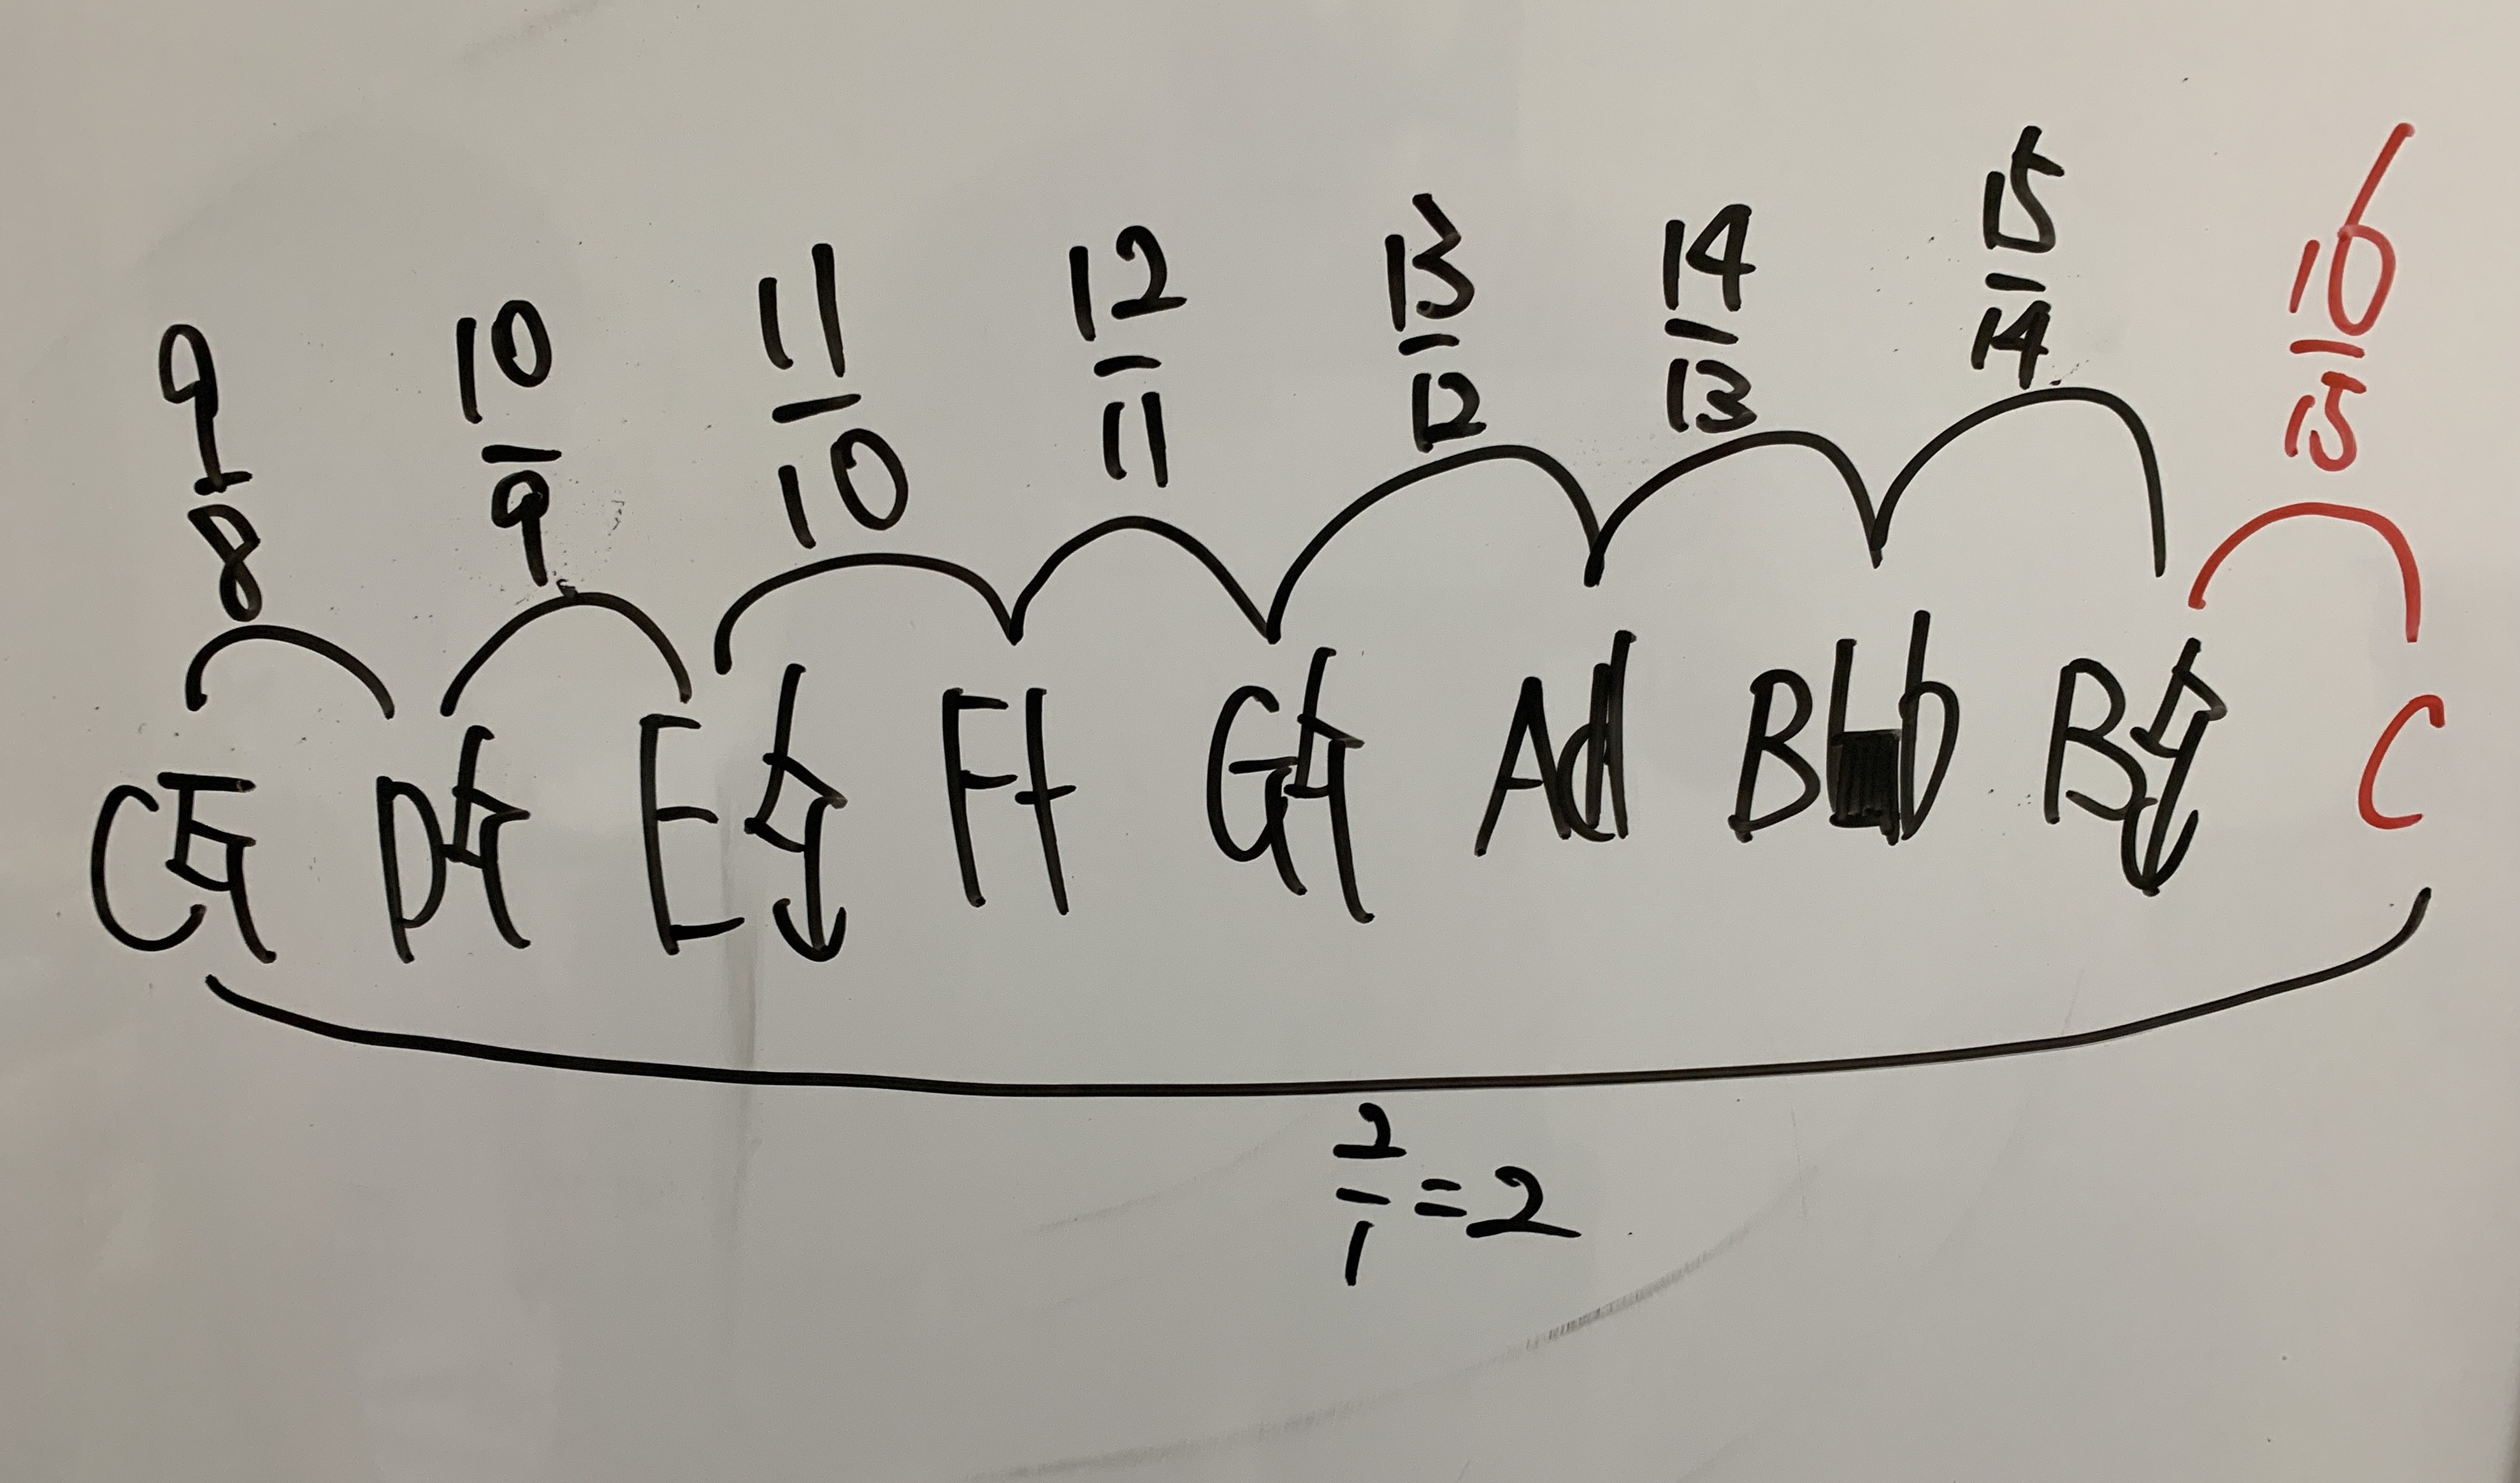 9/8 10/9 11/10 12/11 13/12 14/13 15/14 16/15
C D E F G A B B C
2/1 = 2